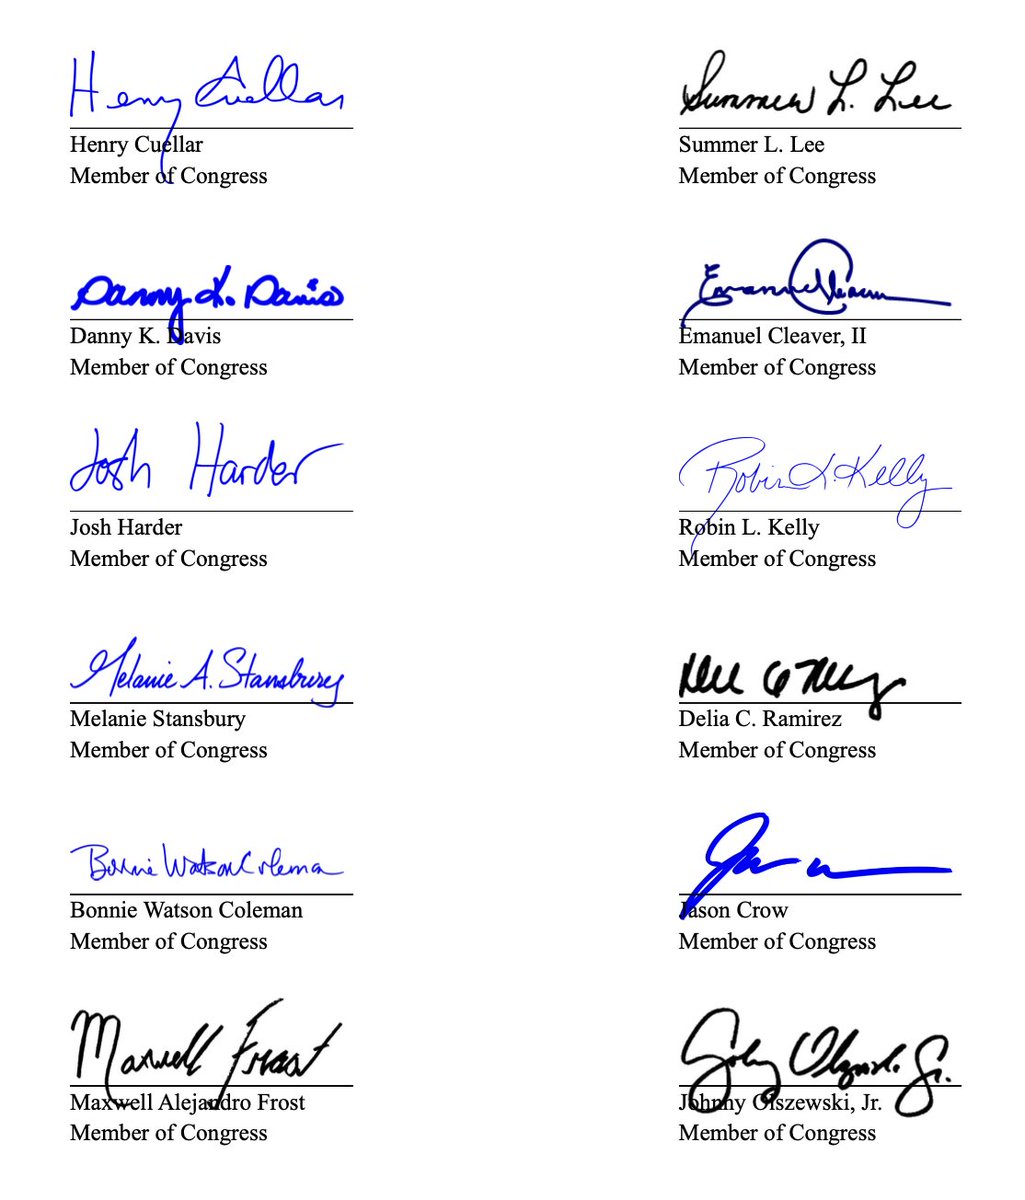 Henry Cuellar Summer L. Lee
Henry Cuellar Summer L. Lee
Member of Congress Member of Congress
Danny K. Davis Emanuel Cleaver
Danny K. Davis Emanuel Cleaver, II
Member of Congress Member of Congress
Josh Harder Robin L. Kelly
Josh Harder Robin L. Kelly
Member of Congress Member of Congress
Melanie A. Stansbury
Melanie Stansbury Delia C. Ramirez
Member of Congress Member of Congress
Bonnie Watson Coleman
Bonnie Watson Coleman Jason Crow
Member of Congress Member of Congress
Maxwell Frost Johny Olszewski Jr.
Maxwell Alejandro Frost Johnny Olszewski, Jr.
Member of Congress Member of Congress